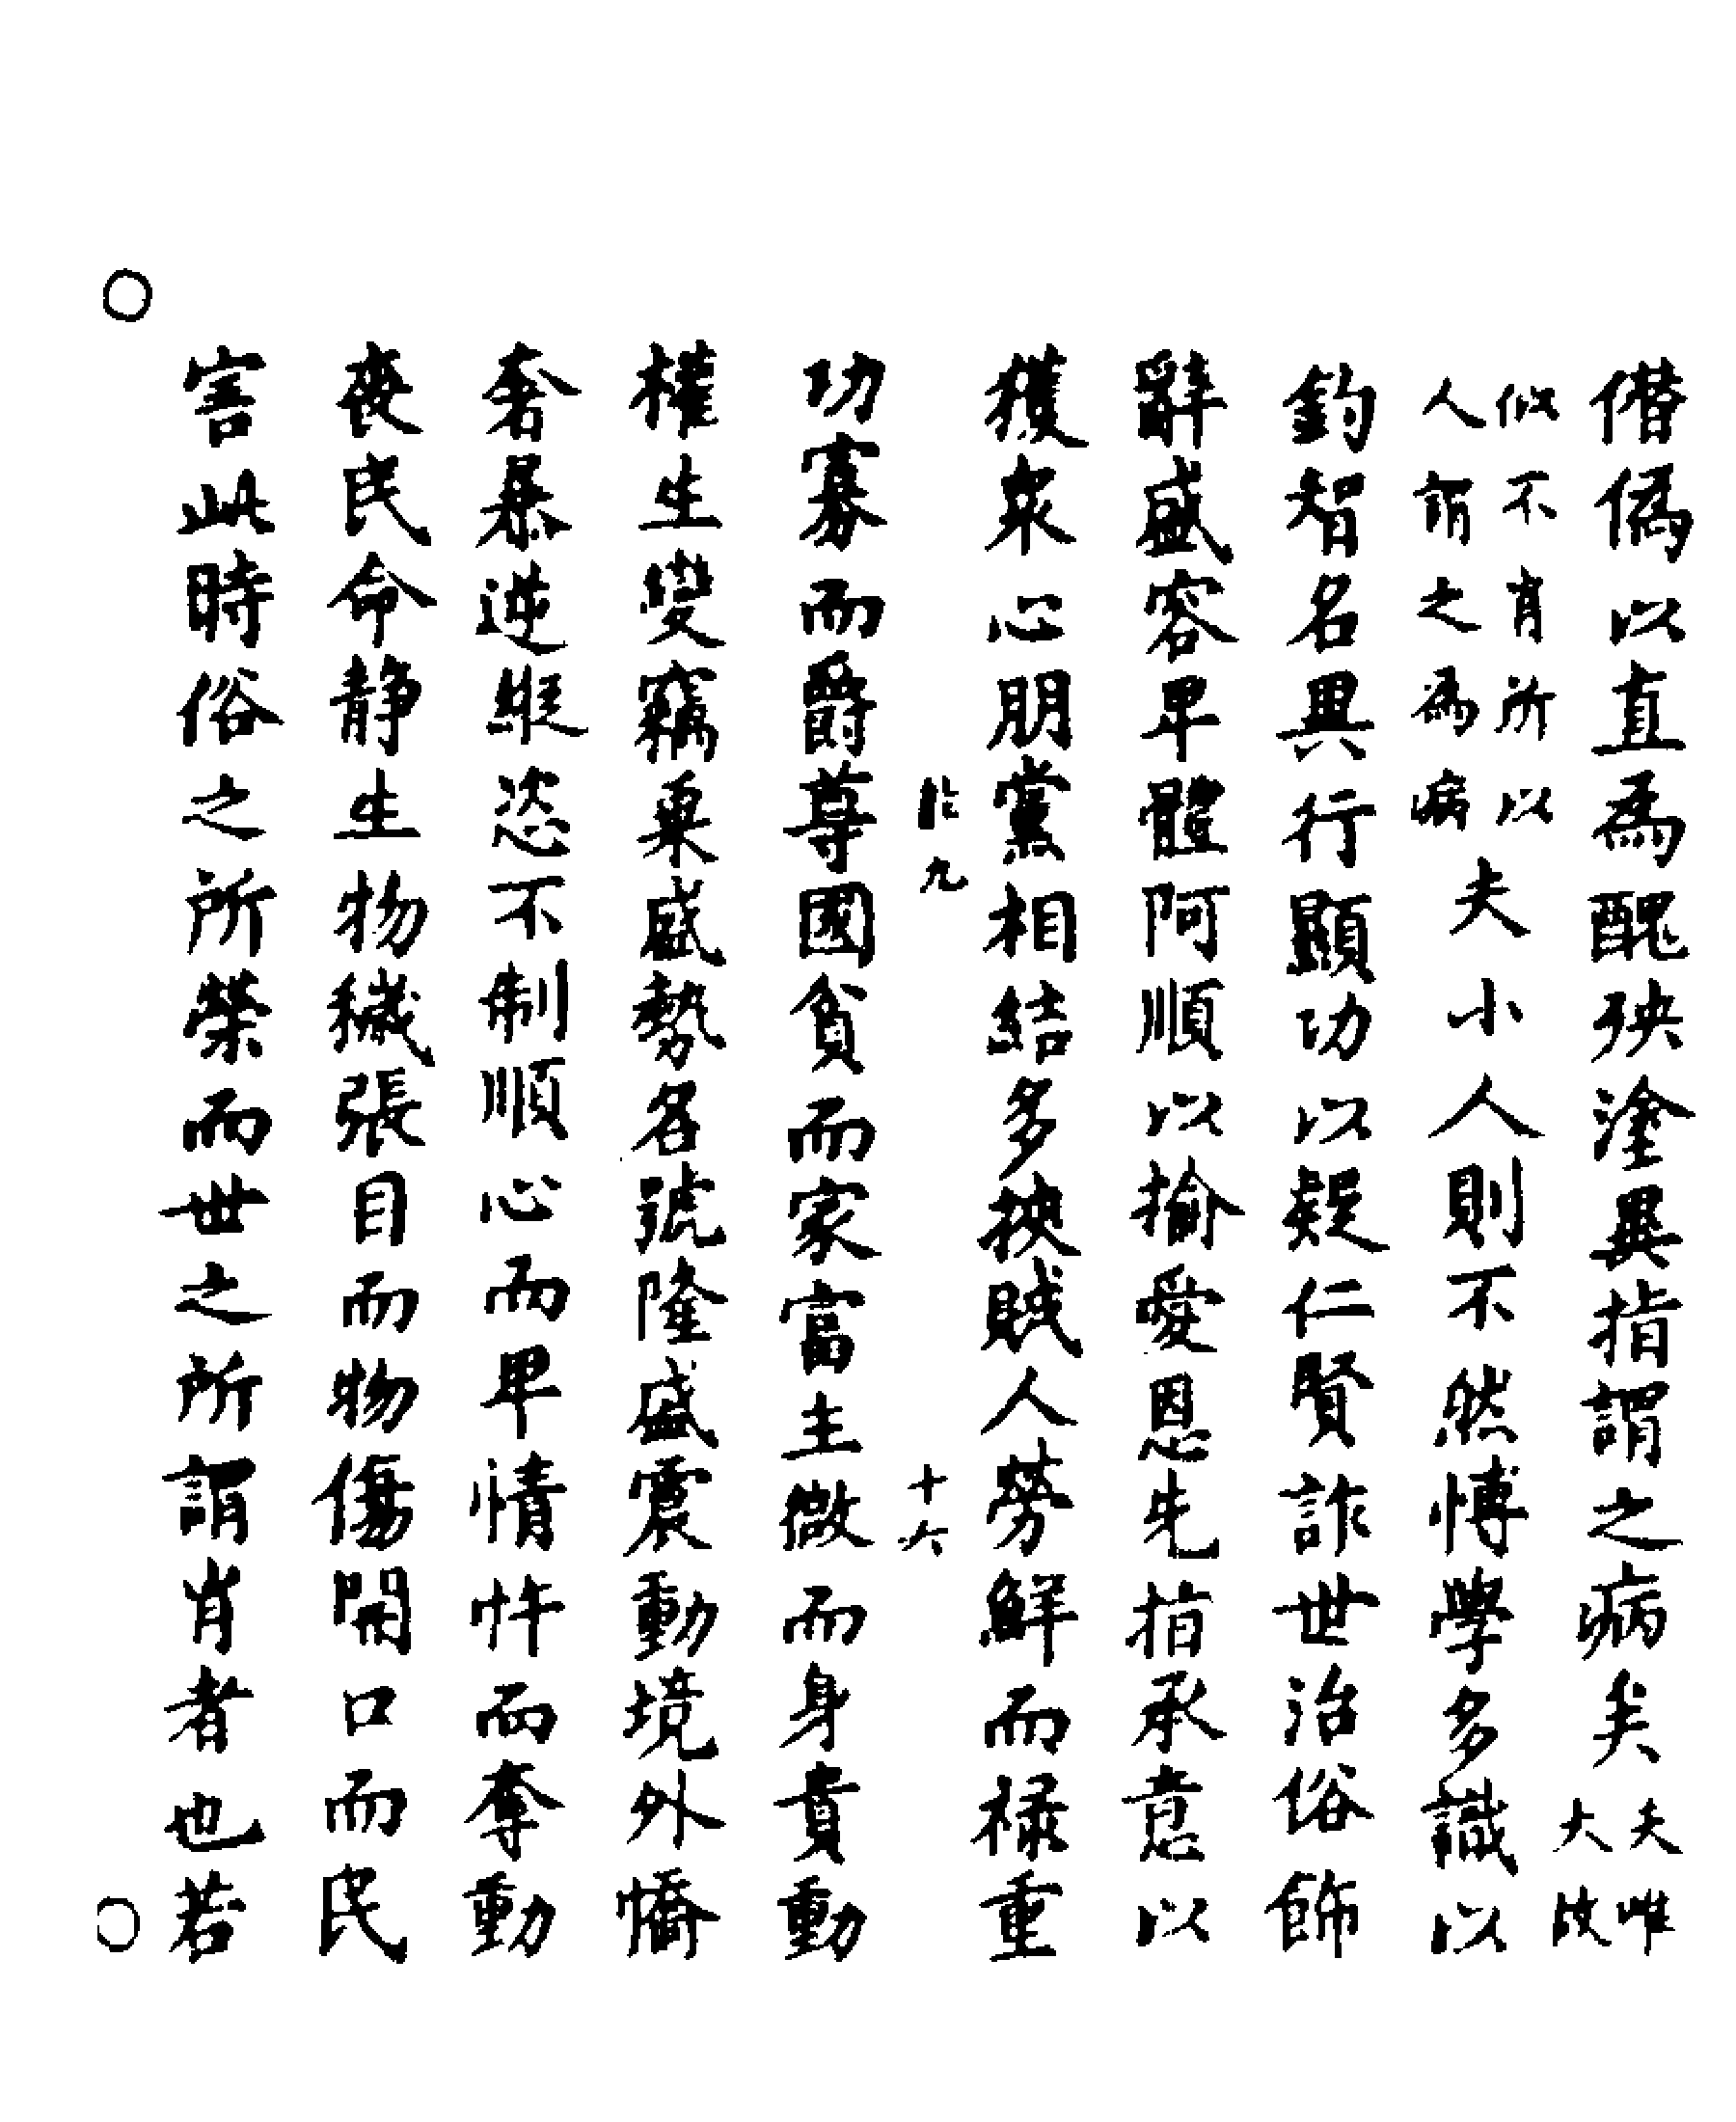 僣偽以直爲醜殃塗異指謂之病矣夫唯大故
似不肖所以人謂之爲病夫小人則不然愽學多識以
釣智名異行顯功以疑仁賢詐世治俗飾
辭盛容卑體阿順以揄愛恩先指承意以
獲衆心朋黨相結多挾賊人勞鮮而禄重
於九 十六
功寡而爵尊國貧而家富主微而身貴動
權生變竊稟盛勢名號隆盛震動境外憍
奢暴逆縱恣不制順心而卑情忤而奪動
喪民命静生物穢張目而物傷開口而民
害此時俗之所榮而世之所謂肖者也若